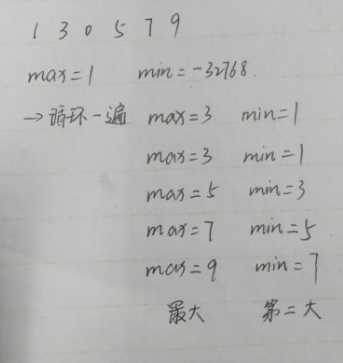 1 3 0 5 7 9
max=1 min=-32768.
→循环一遍 max=3 min=1
max=3 min=1
max=5 min=3
max=7 min=5
max=9 min=7
最大 第二大